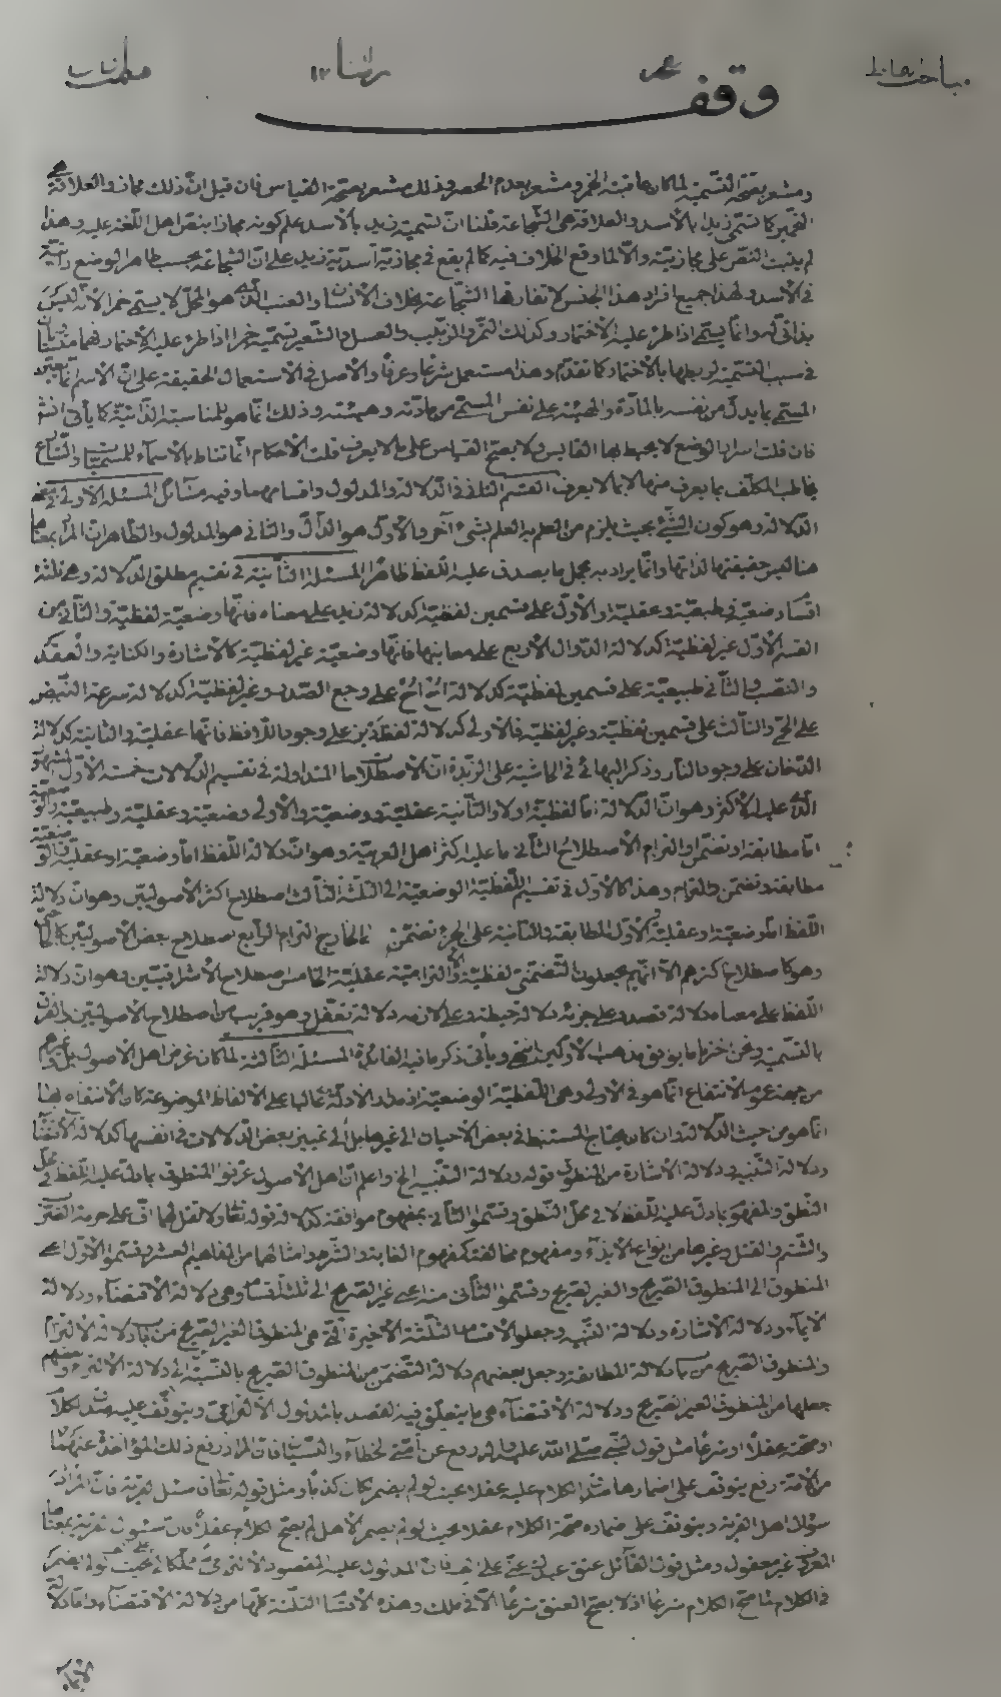 وقف
ومشعر بصحة التسمية لما كان عاقبته الخمر ومشعر بعدم الحصر وذلك مشعر بصحة القياس فان قيل ان ذلك مجاز والعلاقة
التخمير كما تسمى زيدا بالاسد والعلاقة هى الشجاعة قلنا ان تسمية زيد بالاسد علم كونه مجازا بنص اهل اللغة عليه وهذا
لم يثبت النص على مجازيته والا لما وقع الخلاف فيه كما لم يقع فى مجازية اسدية زيد على ان الشجاعة بحسب ظاهر الوضع ذاتية
فى الاسد ولهذا جميع افراد هذا الجنس لا تفارقها الشجاعة بخلاف الانسان والعنب الذى هو المحل لا يسمى خمرا لانه ليس
بذاتى له وانما يسمى اذا طرء عليه الاختمار وكذلك التمر والزبيب والعسل والشعير تسميته خمرا اذا طرء عليه الاختمار فهما
فى سبب التسمية لربطها بالاختمار كما تقدم وهذا مستعمل شرعا وعرفا والاصل فى الاستعمال الحقيقة على ان الاسم انما
المسمى بما يدل من نفسه بالمادة والهيئة على نفس المسمى من مادته وهيئته وذلك انما هو للمناسبة الذاتية كما يأتى انشا
فان قلت اسرار الوضع لا يحيط بها القايس ولا يصح القياس على ما لا يعرف قلت الاحكام انما تناط بالاسماء للمسميات والشارع
يخاطب المكلف بما يعرف منها لا بما لا يعرف القسم الثانى فى الدلالة والمدلول واقسامهما وفيه مسائل المسئلة الاولى فى
الدلالة وهو كون الشئ بحيث يلزم من العلم به العلم بشئ آخر والاول هو الدال والثانى هو المدلول والظاهر ان المراد
هنا ليس حقيقتها لذاتها وانما يراد به مجمل ما يصدق عليه اللفظ ظاهرا المسئلة الثانية فى تقسيم مطلق الدلالة وهى ثلثة
اقسام وضعية وطبيعية وعقلية والاول على قسمين لفظية كدلالة زيد على معناه فانها وضعية لفظية والثانى من
القسم الاول غير لفظية كدلالة الدوال الاربع على معانيها فانها وضعية غير لفظية كالاشارة والكتابة والعقد
والنصب والثانى طبيعية على قسمين لفظية كدلالة اح اح على وجع الصدر وغير لفظية كدلالة سرعة النبض
على الحمى والثالث على قسمين لفظية وغير لفظية فالاولى كدلالة لفظ ديز على وجود اللافظ فانها عقلية والثانية كدلالة
الدخان على وجود النار وذكر البهائى فى الحاشية على الزبدة ان الاصطلاحات المتداولة فى تقسيم الدلالات خمسة الاول المشهور
الذى عليه الاكثر وهو ان الدلالة اما لفظية او لا والثانية عقلية ووضعية والاولى وضعية وعقلية وطبيعية
اما مطابقة او تضمن او التزام الاصطلاح الثانى ما عليه اكثر اهل العربية وهو ان دلالة اللفظ اما وضعية او عقلية
مطابقة وتضمن والتزام وهذا كالاول فى تقسيم اللفظية الوضعية الى الثلثة الثالث اصطلاح اكثر الاصوليين وهو ان دلالة
اللفظ اما وضعية او عقلية الاول المطابقة والثانية على الجزء تضمن الخارج التزام الرابع اصطلاح بعض الاصوليين
وهو كاصطلاح اكثرهم الا انهم يجعلون التضمنى لفظية والالتزامية عقلية الخامس اصطلاح الاشراقيين وهو ان دلالة
اللفظ على معناه دلالة قصد وعلى جزئه دلالة حيطة وعلى لازمه دلالة تطفل وهو قريب من اصطلاح الاصوليين والفرق
بالتسمية ونحن اخترنا ما يوافق مذهب الاولين انتهى ويأتى ذكر ما فيه الفائدة المسئلة الثالثة لما كان غرض اهل الاصول
من جهة عموم الانتفاع انما هو فى الاولى وهى اللفظية الوضعية اذ مدار الادلة غالبا على الالفاظ الموضوعة كان الانتفاع بها
انما هو من حيث الدلالة وان كان يحتاج المستنبط فى بعض الاحيان الى غيرها بل الى تمييز بعض الدلالات فى انفسها كدلالة الاقتضاء
ودلالة التنبيه ودلالة الاشارة من المنطوق قوله ودلالة التنبيه الخ واعلم ان اهل الاصول عرفوا المنطوق بما دل عليه اللفظ فى محل
النطق والمفهوم بما دل عليه اللفظ لا فى محل النطق وقسموا الثانى بمفهوم موافقة كدلالة قوله تعالى ولا تقل لهما اف على حرمة الضرب
والشتم والقتل وغيرها من انواع الايذاء ومفهوم مخالفة كمفهوم الغاية والشرط وامثالهما من المفاهيم العشرة وقسموا الاول اعنى
المنطوق الى المنطوق الصريح والغير الصريح وقسموا الثانى منه اعنى غير الصريح الى ثلثة اقسام وهى دلالة الاقتضاء ودلالة
الايماء ودلالة الاشارة ودلالة التنبيه وجعلوا الاقسام الثلثة الاخيرة التى هى المنطوق الغير الصريح من باب دلالة الالتزام
والمنطوق الصريح من باب دلالة المطابقة وجعل بعضهم دلالة التضمن من المنطوق الصريح بالنسبة الى دلالة الالتزام وبعضهم
جعلها من المنطوق الغير الصريح ودلالة الاقتضاء هى ما يتعلق فيه القصد بالمدلول الالتزامى ويتوقف عليه صدق الكلام
او صحته عقلا او شرعا مثل قول النبى صلى الله عليه وآله رفع عن امتى الخطاء والنسيان فان المراد رفع ذلك المؤاخذة عنهما
من الامة رفع يتوقف على اضمارها صدق الكلام عليه عقلا بحيث لو لم يضمر لكان كذبا ومثل قوله تعالى واسئل القرية فان المراد
سؤال اهل القرية ويتوقف على اضماره صحة الكلام عقلا بحيث لو لم يضمر الاهل لم يصح الكلام عقلا فان سئوال القرية
غير معقول ومثل قول القائل اعتق عبدك عنى على الف فان المدلول عليه المقصود الالتزامى بحيث لو لم يضمر
فى الكلام ما صح الكلام شرعا اذ لا يصح العتق شرعا الا فى ملك وهذه الاقسام الثلثة كلها من دلالة الاقتضاء واما دلالة